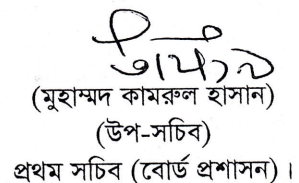 (মুহাম্মদ কামরুল হাসান)
(উপ-সচিব)
প্রথম সচিব (বোর্ড প্রশাসন)।